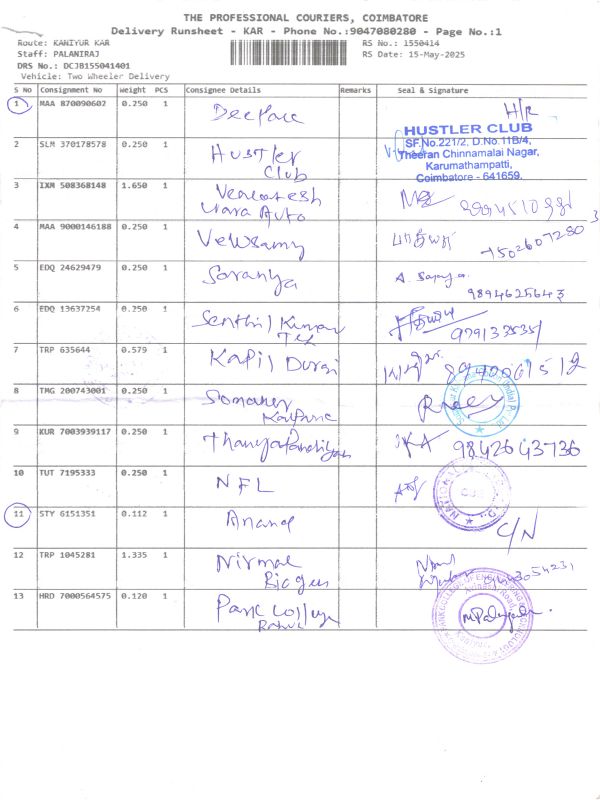 THE PROFESSIONAL COURIERS, COIMBATORE
Delivery Runsheet - KAR - Phone No.:9047080280 - Page No.:1
Route: KANIYUR KAR RS No.: 1550414
Staff: PALANIRAJ RS Date: 15-May-2025
DRS No.: DCJB155041401
Vehicle: Two Wheeler Delivery
S No Consignment No Weight PCS Consignee Details Remarks Seal & Signature
1 MAA 870090602 0.250 1 Deepak H/R
2 SLM 370178578 0.250 1 Hustler
Club
HUSTLER CLUB
SF.No.221/2, D.No.11B/4,
Theeran Chinnamalai Nagar,
Karumathampatti,
Coimbatore - 641659.
3 IXM 508368148 1.650 1 Venkatesh
Auto
4 MAA 9000146188 0.250 1 Velusamy
5 EDQ 24629479 0.250 1 Saranya
9894625643
6 EDQ 13637254 0.250 1 Senthil Kumar
Tex
979133535
7 TRP 635644 0.579 1 Kapil Durai
8 TMG 200743001 0.250 1
9 KUR 7003939117 0.250 1 Thangapandiyan 9842643736
10 TUT 7195333 0.250 1 NFL
11 STY 6151351 0.112 1 Anand C/N
12 TRP 1045281 1.335 1 Nirmal
13 HRD 7000564575 0.120 1 Park College